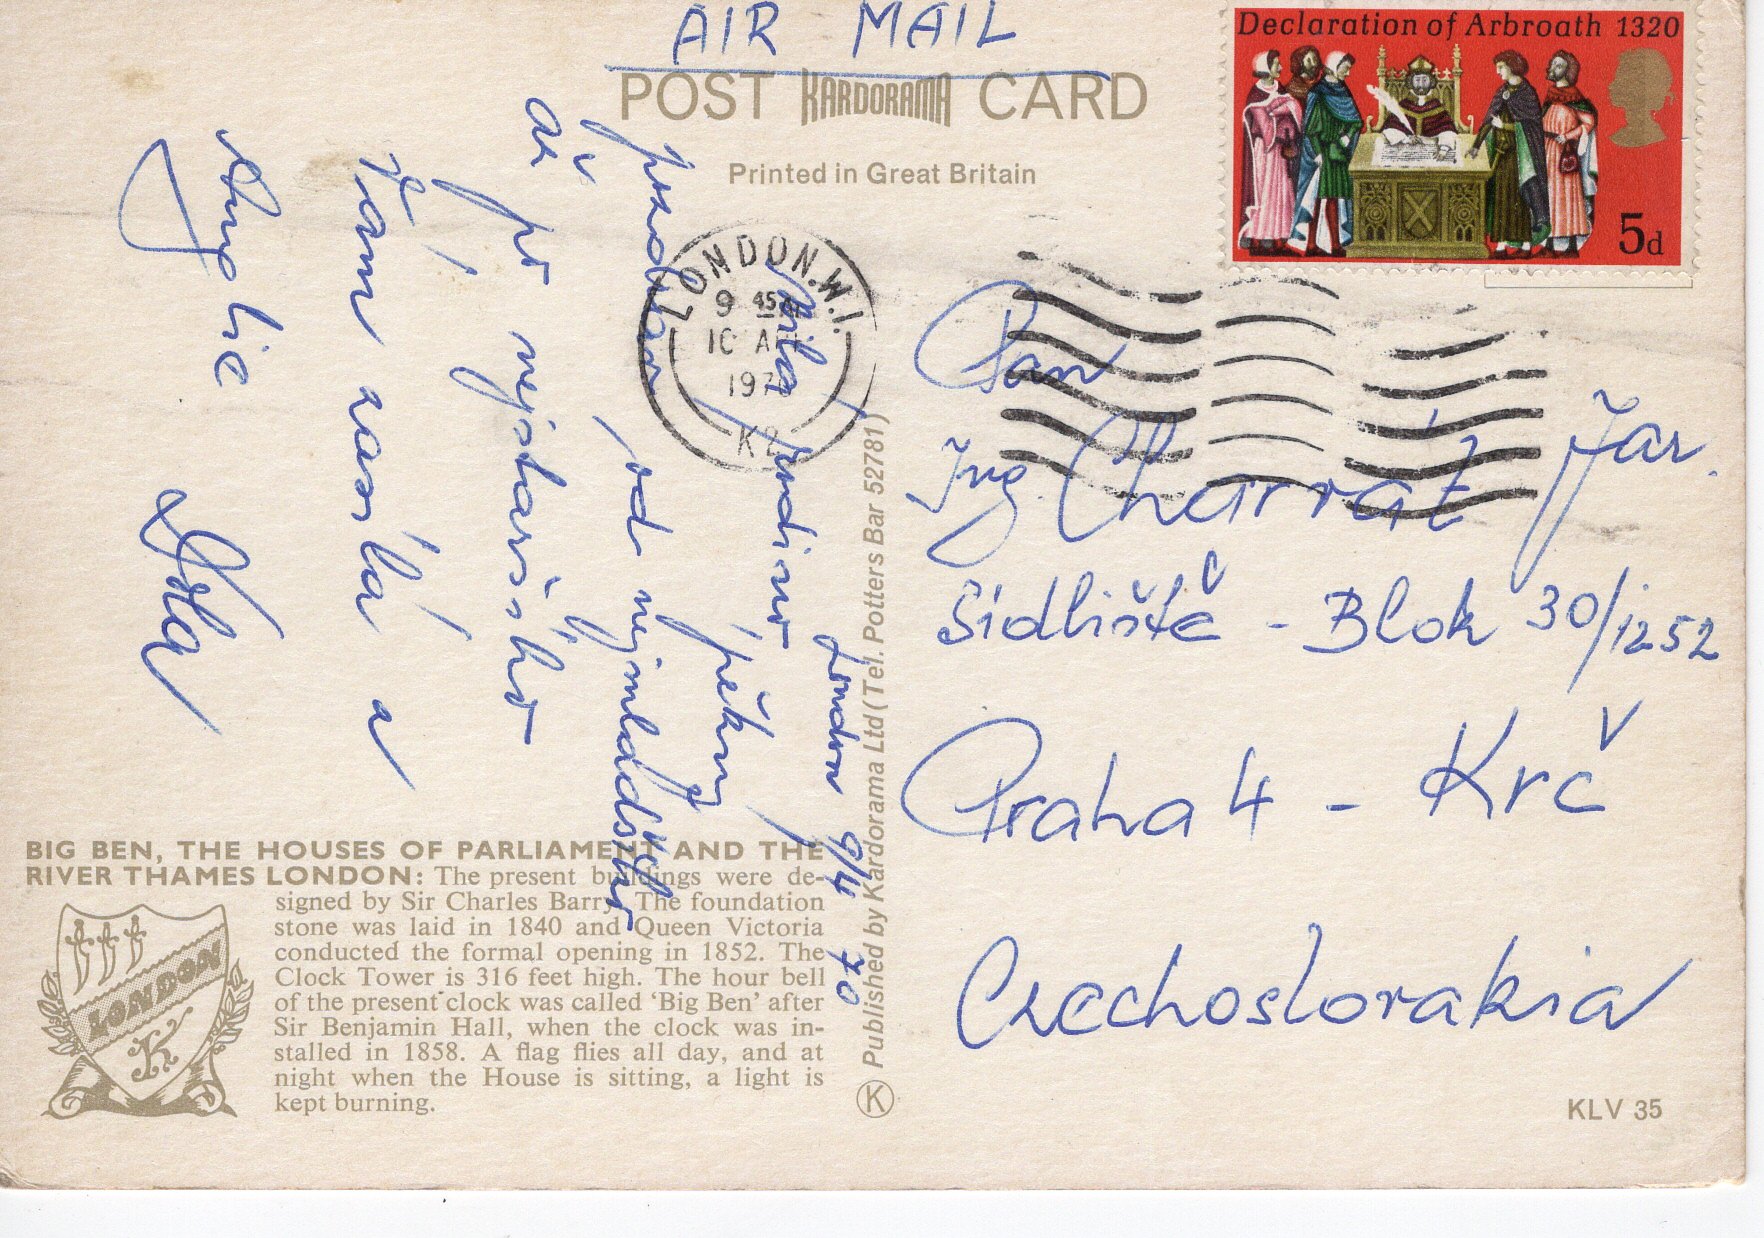 AIR MAIL
POST KARDORAMA CARD
Printed in Great Britain
Declaration of Arbroath 1320
5d
LONDON. W.1.
9 45
10 AP
197
K2
London 9/4 70
Milá rodino,
pěkný
pozdrav, od nejmladšího
až
po nejstaršího
Vám zasílá z
Anglie
Pan
Ing. Charvát Jar.
Sídliště - Blok 30/1252
Praha 4 - Krč
Czechoslovakia
BIG BEN, THE HOUSES OF PARLIAMENT AND THE
RIVER THAMES LONDON: The present buildings were de-
signed by Sir Charles Barry. The foundation
stone was laid in 1840 and Queen Victoria
conducted the formal opening in 1852. The
Clock Tower is 316 feet high. The hour bell
of the present clock was called ‘Big Ben’ after
Sir Benjamin Hall, when the clock was in-
stalled in 1858. A flag flies all day, and at
night when the House is sitting, a light is
kept burning.
LONDON
K
Published by Kardorama Ltd (Tel. Potters Bar 52781)
K
KLV 35